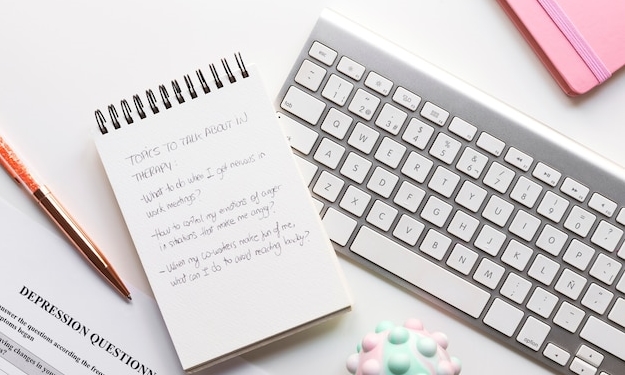 TOPICS TO TALK ABOUT IN
THERAPY:
-What to do when I get nervous in
work meetings?
-How to control my emotions of anger
in situations that make me angry?
- When my co-workers make fun of me,
what can I do to avoid reacting badly?
DEPRESSION QUESTIONN
answer the questions according the
mptoms began
aving changes in your
Q W E R T Y U I O P
A S D F G H J K L Ñ
Z X C V B N M
option